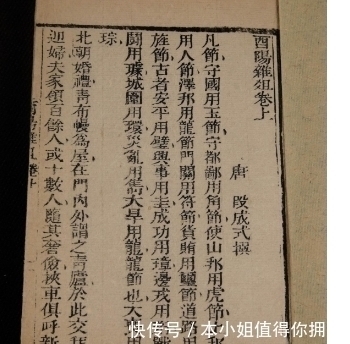 酉陽雜俎卷上
唐 段成式撰
凡節守國用玉節守都鄙用角節使山邦用虎節土邦
用人節澤邦用龍節門關用符節貨賄用璽節道路用
旌節古者安平用璧興事用圭成功用璋邊戎用珩戰
鬪用璩城圍用環災亂用雋大旱用龍龍節也大喪用
琮
北朝婚禮青布幔爲屋在門內外謂之青廬於此交拜
迎婦夫家領百餘人或十數人隨其奢儉挾車俱呼新
快传号 / 本小姐值得你拥